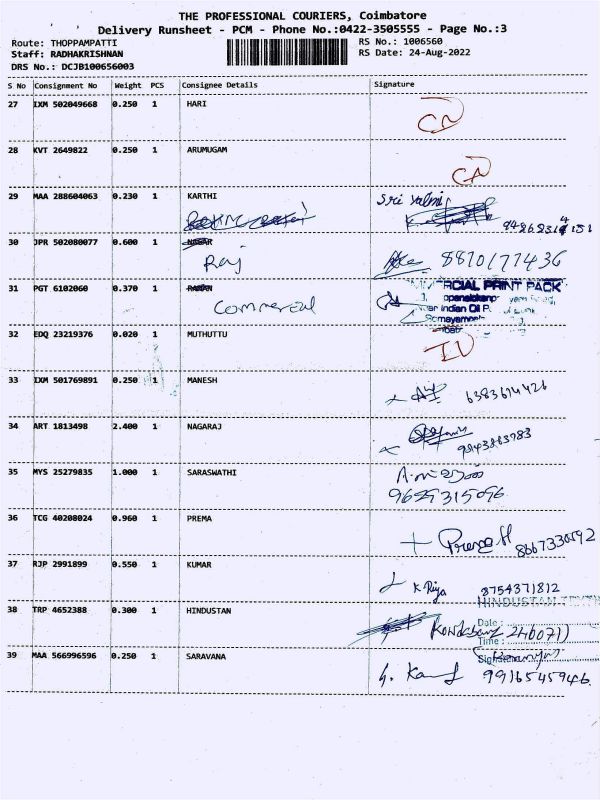 THE PROFESSIONAL COURIERS, Coimbatore
Delivery Runsheet - PCM - Phone No.:0422-3505555 - Page No.:3
Route: THOPPAMPATTI
RS No.: 1006560
Staff: RADHAKRISHNAN
RS Date: 24-Aug-2022
DRS No.: DCJB100656003
S No Consignment No Weight PCS Consignee Details Signature
27 IXM 502049668 0.250 1 HARI
CN
28 KVT 2649822 0.250 1 ARUMUGAM
CA
29 MAA 288604063 0.230 1 KARTHI
Sri
30 JPR 502080077 0.600 1
Raj 8870177436
31 PGT 6102060 0.370 1
Commercial
COMMERCIAL PRINT PACK
Indian Oil
32 EDQ 23219376 0.020 1 MUTHUTTU
33 IXM 501769891 0.250 1 MANESH
6383614426
34 ART 1813498 2.400 1 NAGARAJ
35 MYS 25279835 1.000 1 SARASWATHI
9629315096
36 TCG 40208024 0.960 1 PREMA
Prema H 8667330592
37 RJP 2991899 0.550 1 KUMAR
K. Riya 8754371812
38 TRP 4652388 0.300 1 HINDUSTAN
HINDUSTAN
Date :
Time :
39 MAA 566996596 0.250 1 SARAVANA
9916545946